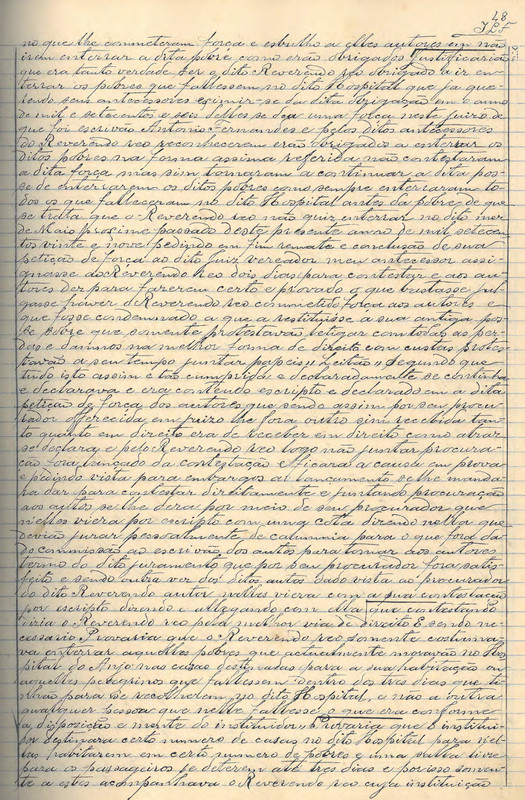 48
no que lhe commeteram força e esbulho a elles autores em não
irem enterrar a dita pobre como erão obrigados Justificarião
que era tanto verdade ser o dito Reverendo reo obrigado a ir en-
terrar os pobres que fallessem no dito Hospital que ja que-
rendo seus antecessores eximir-se da dita obrigação em o anno
de mil e setecentos e seis delles se deu uma força neste juizo de
que foi escrivão Antonio Fernandes e pelos ditos antecessores
do Reverendo reo reconhecerem erão obrigados a enterrar os
ditos pobres na forma assima referida não contestaram
a dita força mas sim tornaram a continuar a dita pos-
se de enterrarem os ditos pobres como sempre enterraram to-
dos os que falleceram no dito Hospital antes da pobre de que
se trata que o Reverendo reo não quiz enterrar no dito mez
de Maio proximo passado deste presente anno de mil setecen-
tos vinte e nove pedindo em fim remate e conclusão de sua
petição de força ao dito juiz vereador meu antecessor assi-
gnasse ao Reverendo reo dois dias para contestar e aos au-
tores dez para fazerem certo e provado o que bastasse jul-
gasse haver o Reverendo reo commetido força aos autores e
que fosse condemnado a que a restituisse a sua antiga pos-
se sobre que somente protestavão letigar com todas as per-
das e damnos na melhor forma de direito com custas protes-
tavão a seu tempo juntar papeis Segundo que
tudo isto assim e tão cumprida e declaradamente se continha
e declarava e era contendo escripto e declarado em a dita
petição de força dos autores que sendo assim por seu procu-
rador offerecida em juizo lhe fora outro sim recebida tan-
to quanto em direito era de receber em direito como atraz
se declara e pelo Reverendo reo logo não juntar procura-
ção fora lançado da contestação e ficara a causa em prova
e pedindo vista para embargos ao lançamento se lhe manda-
ra dar para contestar direitamente e juntando procuração
aos autos se lhe dera por meio de seu procurador que
nelles viera por escripto com uma cota dizendo nella que
devião jurar pessoalmente de calumnia para o que fora da-
do commissão ao escrivão dos autos para tomar aos autores
termo do dito juramento que por seu procurador fora satis-
feito e sendo outra vez dos ditos autos dado vista ao procurador
do dito Reverendo autor nelles viera com a sua contestação
por escripto dizendo e allegando com ella que contestando
diria o Reverendo reo pela melhor via de direito E sendo ne-
cessario Provaria que o Reverendo reo somente costuma-
va enterrar aquelles pobres que actualmente moravão no Hos-
pital do Anjo nas casas destinadas para a sua habitação ou
aquelles peregrinos que fallessem dentro dos tres dias que ti-
nhão para se recolherem no dito Hospital e não a outra
qualquer pessoa que nelle fallesse o que era conforme
a disposição e mente do instituidor Provaria que o institui-
dor destinara certo numero de casas no dito Hospital para nel-
las habitarem em certo numero de pobres e uma salla livre
para os passageiros se deterem até tres dias e por isso somen-
te a estes acompanhava o Reverendo reo cuja instituição